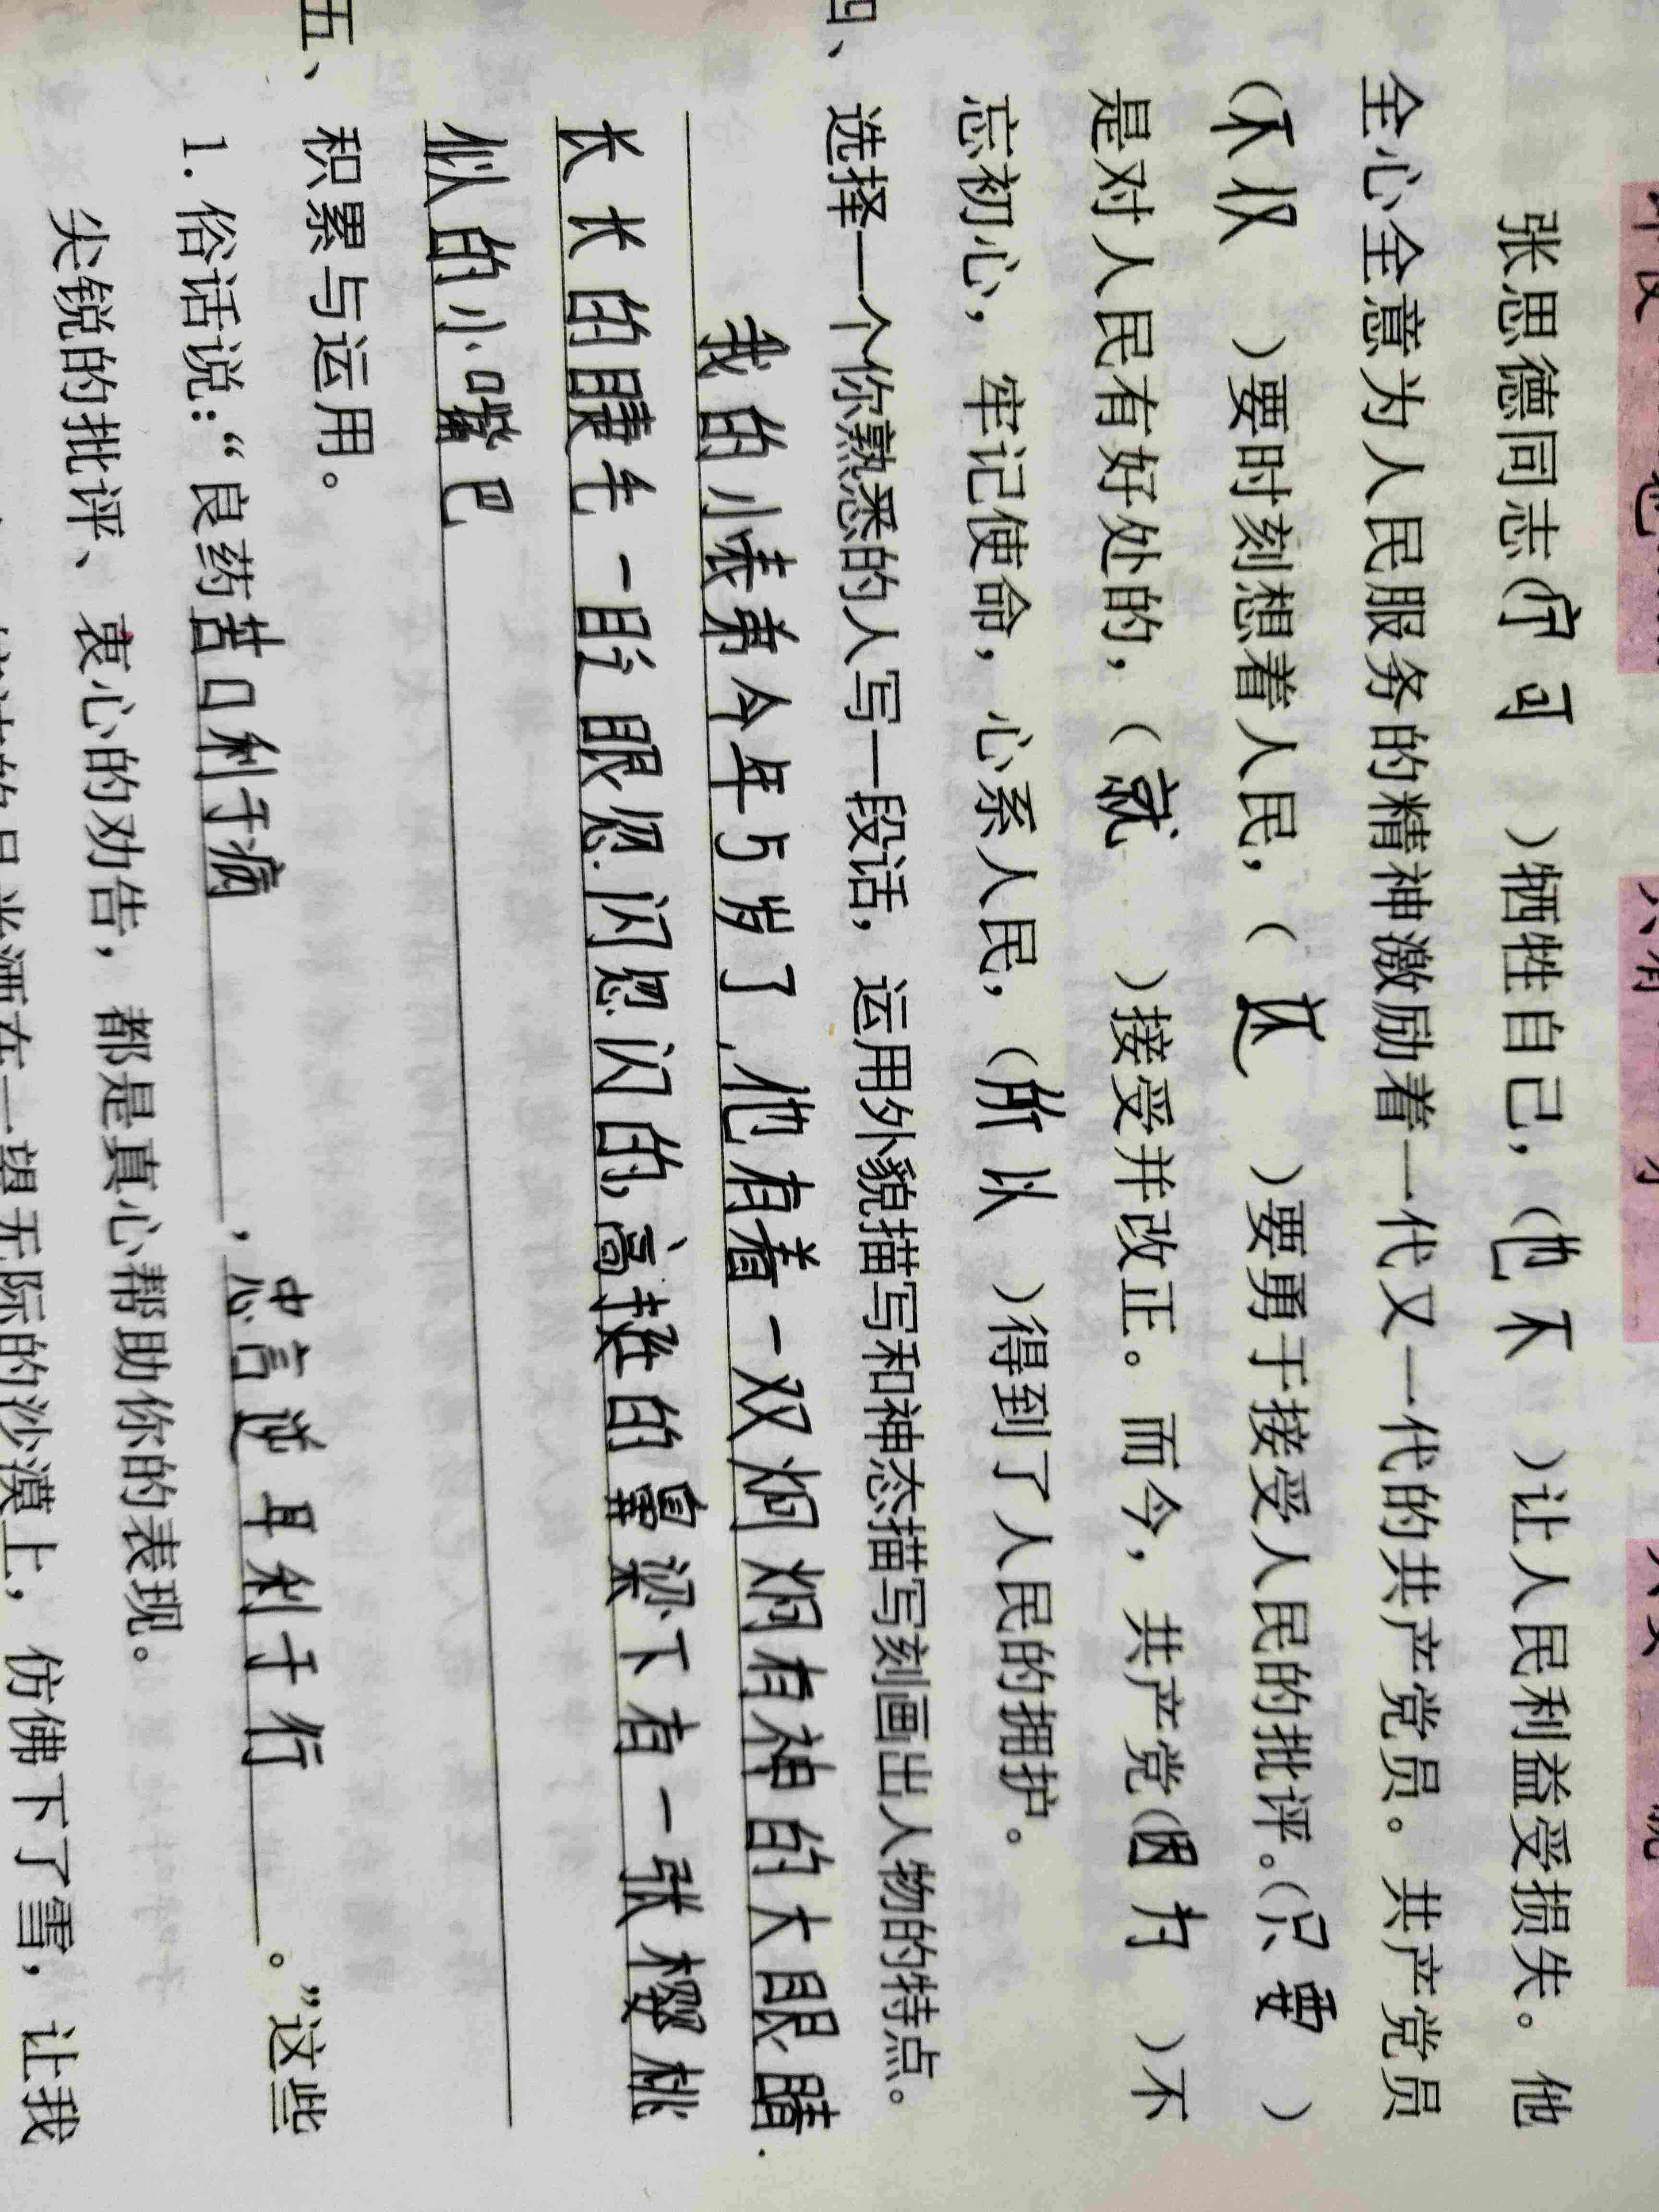 张思德同志(宁可)牺牲自己，(也不)让人民利益受损失。他
全心全意为人民服务的精神激励着一代又一代的共产党员。共产党员
(不仅)要时刻想着人民，(还)要勇于接受人民的批评。(只要)
是对人民有好处的，(就)接受并改正。而今，共产党(因为)不
忘初心，牢记使命，心系人民，(所以)得到了人民的拥护。
四、选择一个你熟悉的人写一段话，运用外貌描写和神态描写刻画出人物的特点。
我的小表弟今年5岁了,他有着一双炯炯有神的大眼睛.
长长的睫毛一眨一眨.忽闪忽闪的,高挺的鼻梁下有一张樱桃
似的小嘴巴
五、积累与运用。
1. 俗话说：“良药苦口利于病，忠言逆耳利于行。”这些
尖锐的批评、衷心的劝告，都是真心帮助你的表现。
在一望无际的沙漠上，仿佛下了雪，让我